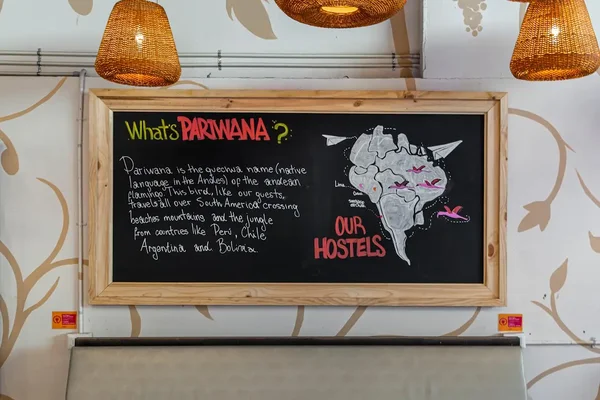 What's PARIWANA?
Pariwana is the quechua name (native
language in the Andes) of the andean
flamingo. This bird, like our guests,
travels all over South America crossing
beaches mountains and the jungle
from countries like Perú, Chile
Argentina and Bolivia
Lima
Cusco
OUR
HOSTELS